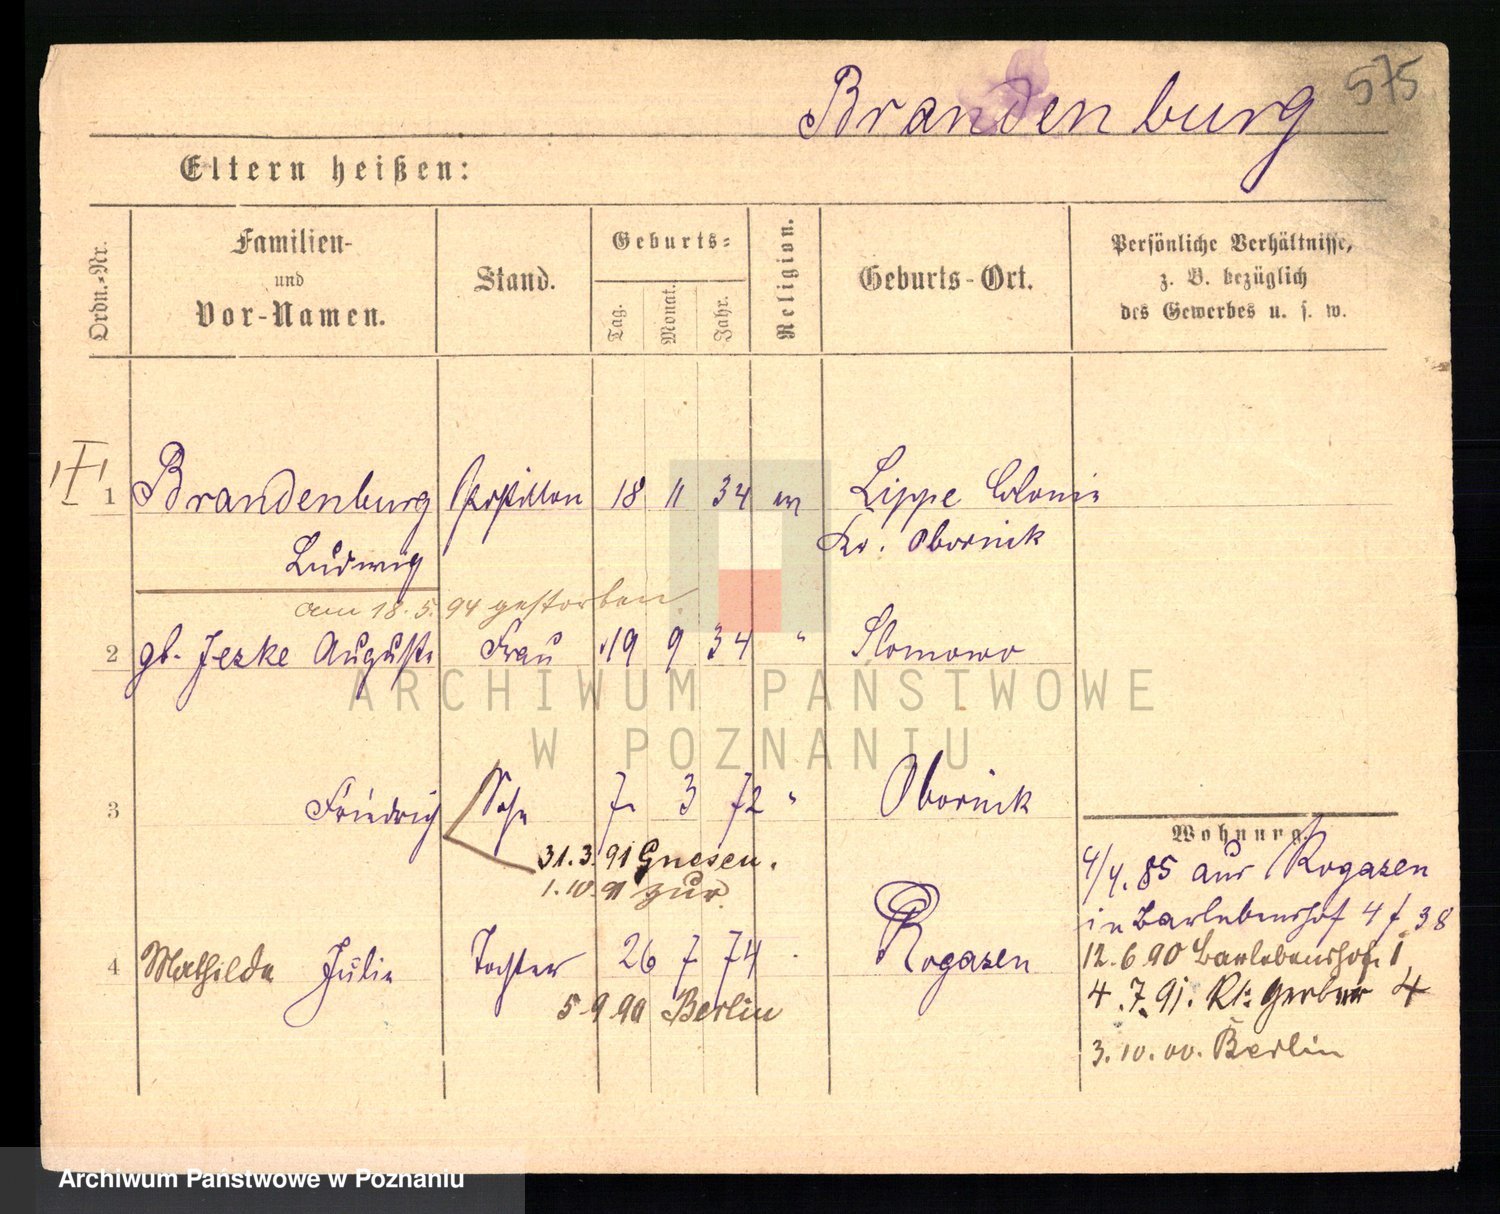 575
Brandenburg
Eltern heißen:
Ordn.-Nr.
Familien-
und
Vor-Namen.
Stand.
Geburts-
Tag.
Monat.
Jahr.
Religion.
Geburts-Ort.
Persönliche Verhältnisse,
z. B. bezüglich
des Gewerbes u. s. w.
1 Brandenburg 18 11 34 ev Lippe Colonie
Ludwig Kr. Obornick
am 18. 5. 94 gestorben
2 gb. Jeske Auguste Frau 19 9 34 " Slomowo
3 Friedrich Sohn 7 3 72 " Obornick
31. 3. 91 Gnesen.
1. 10. 91 zur.
4 Mathilde Julie Tochter 26 7 74 Rogasen
5 9 90 Berlin
Wohnung.
4/4. 85 aus Rogasen
in Barlebenshof 4 f 38
12. 6 90 Barlebenshof 1
4. 7. 91. Kl: Gerber 4
3. 10. 00. Berlin
ARCHIWUM PAŃSTWOWE
W POZNANIU
Archiwum Państwowe w Poznaniu